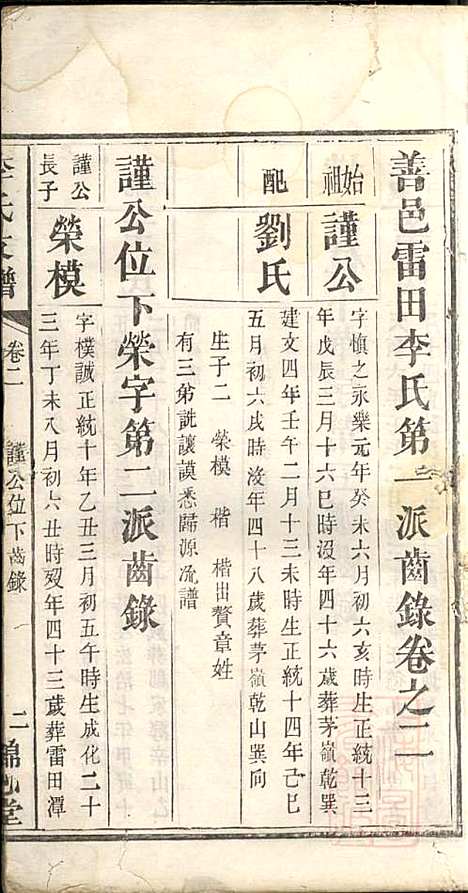 善邑雷田李氏第一派齒錄卷之二
始祖
謹公
字慎之永樂元年癸未六月初六亥時生正統十三
年戊辰三月十六巳時沒年四十六歲葬茅嶺乾巽
配
劉氏
建文四年壬午二月十三未時生正統十四年己巳
五月初六戌時沒年四十八歲葬茅嶺乾山巽向
生子二 榮模 楷 楷出贅章姓
有三弟詵讓謨悉歸源流譜
謹公位下榮字第二派齒錄
謹公
長子
榮模
字樸誠正統十年乙丑三月初五午時生成化二十
三年丁未八月初六丑時歿年四十三歲葬雷田潭
李氏支譜
卷二
謹公位下齒錄
二